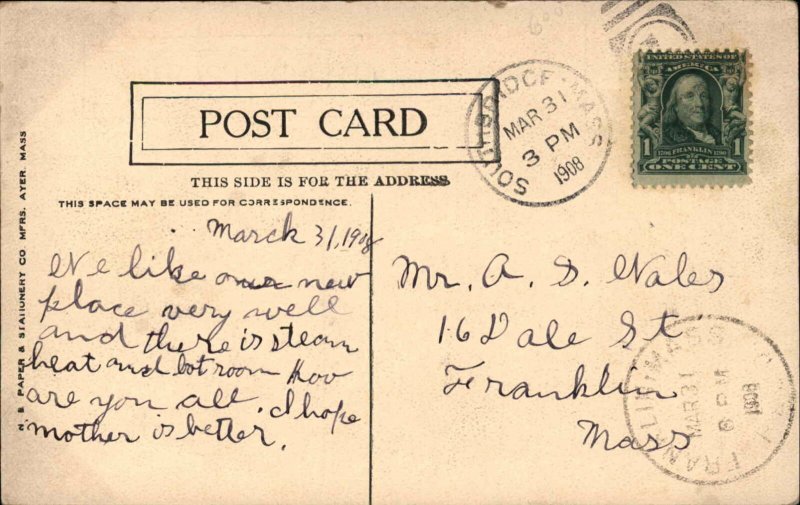 POST CARD
THIS SIDE IS FOR THE ADDRESS
THIS SPACE MAY BE USED FOR CORRESPONDENCE.
N. E. PAPER & STATIONERY CO. MFRS. AYER, MASS
SOUTHBRIDGE MASS
MAR 31
3 PM
1908
UNITED STATES
OF AMERICA
1 1706 FRANKLIN 1790 1
POSTAGE
ONE CENT
March 31, 1908
We like our new
place very well
and there is steam
heat and bot room How
are you all. I hope
mother is better.
Mr. A. D. Wales
16 Dale St
Franklin
Mass
FRANKLIN MASS
MAR 31
6 PM
1908